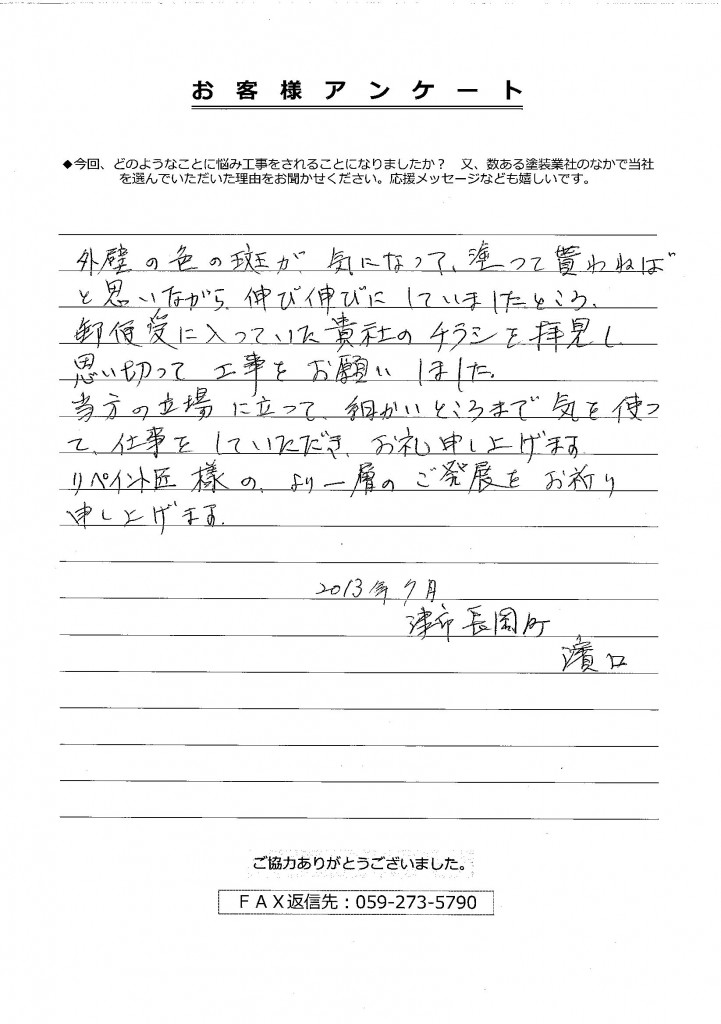 お客様アンケート
◆今回、どのようなことに悩み工事をされることになりましたか？　又、数ある塗装業社のなかで当社
を選んでいただいた理由をお聞かせください。応援メッセージなども嬉しいです。
外壁の色の斑が、気になって、塗って貰わねば
と思いながら、伸び伸びにしていましたところ、
郵便受に入っていた貴社のチラシを拝見し
思い切って工事をお願いしました。
当方の立場に立って、細かいところまで気を使っ
て、仕事をしていただき、お礼申し上げます
リペイント匠様の、より一層のご発展をお祈り
申し上げます。
2013年7月
津市長岡町
濱口
ご協力ありがとうございました。
ＦＡＸ返信先：059-273-5790